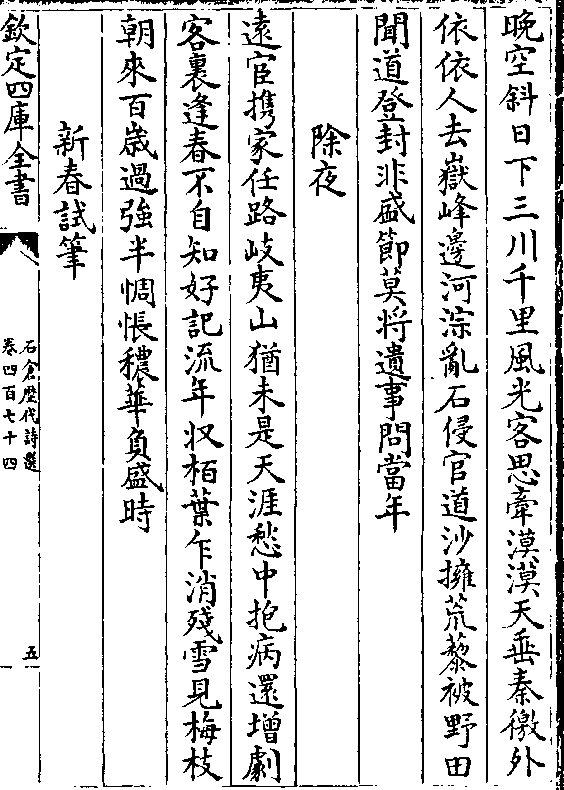 晚空斜日下三川千里風光客思牽漠漠天垂秦徼外
依依人去嶽峰邊河淙亂石侵官道沙擁荒藜被野田
聞道登封非盛節莫將遺事問當年
除夜
遠宦攜家任路岐夷山猶未是天涯愁中抱病還增劇
客裏逢春不自知好記流年収栢葉乍消殘雪見梅枝
朝來百歳過強半惆悵穠華負盛時
新春試筆
欽定四庫全書
石倉歴代詩選
卷四百七十四
五